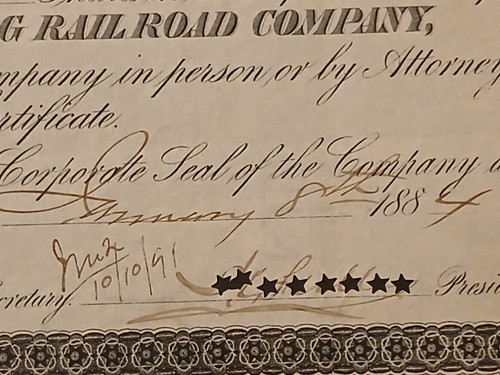 G RAIL ROAD COMPANY,
mpany in person, or by Attorney
rtificate.
Corporate Seal of the Company a
January 8th 1884
10/10/91
cretary.
Presid